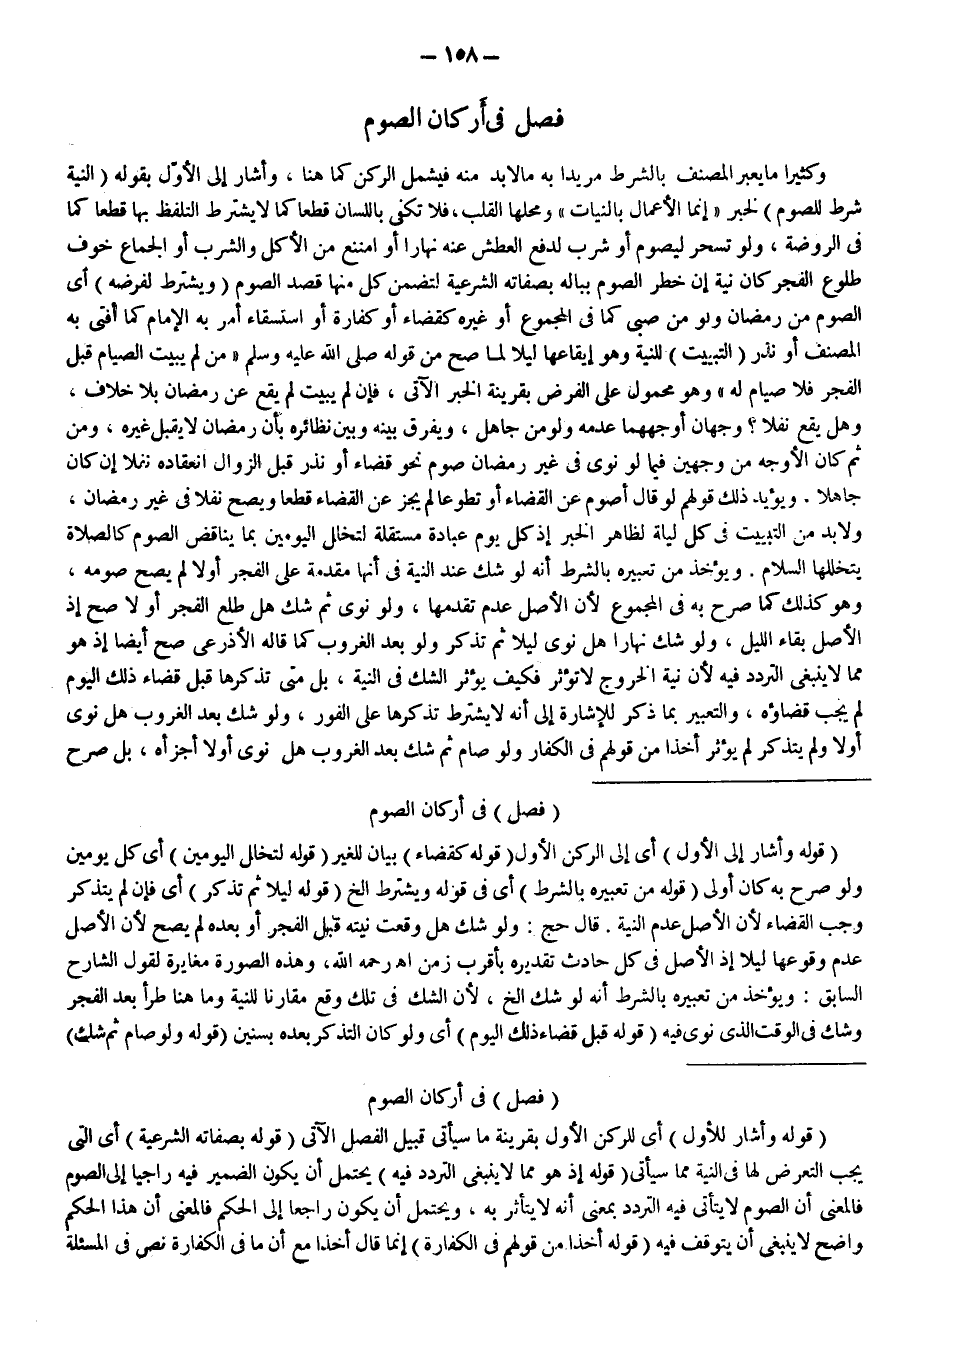 — ١٥٨ —
فصل فى أركان الصوم
وكثيرا مايعبر المصنف بالشرط مريدا به مالابد منه فيشمل الركن كما هنا ، وأشار إلى الأوّل بقوله ( النية
شرط للصوم ) لخبر « إنما الأعمال بالنيات » ومحلها القلب ، فلا تكفى باللسان قطعا كما لايشترط التلفظ بها قطعا كما
فى الروضة ، ولو تسحر ليصوم أو شرب لدفع العطش عنه نهارا أو امتنع من الأكل والشرب أو الجماع خوف
طلوع الفجر كان نية إن خطر الصوم بباله بصفاته الشرعية لتضمن كل منها قصد الصوم ( ويشترط لفرضه ) أى
الصوم من رمضان ولو من صبى كما فى المجموع أو غيره كقضاء أو كفارة أو استسقاء أمر به الإمام كما أفتى به
المصنف أو نذر ( التبييت ) للنية وهو إيقاعها ليلا لما صح من قوله صلى الله عليه وسلم « من لم يبيت الصيام قبل
الفجر فلا صيام له » وهو محمول على الفرض بقرينة الخبر الآتى ، فإن لم يبيت لم يقع عن رمضان بلا خلاف ،
وهل يقع نفلا ؟ وجهان أوجههما عدمه ولومن جاهل ، ويفرق بينه وبين نظائره بأن رمضان لايقبل غيره ، ومن
ثم كان الأوجه من وجهين فيما لو نوى فى غير رمضان صوم نحو قضاء أو نذر قبل الزوال انعقاده نفلا إن كان
جاهلا . ويؤيد ذلك قولهم لو قال أصوم عن القضاء أو تطوعا لم يجز عن القضاء قطعا ويصح نفلا فى غير رمضان ،
ولابد من التبييت فى كل ليلة لظاهر الخبر إذ كل يوم عبادة مستقلة لتخال اليومين بما يناقض الصوم كالصلاة
يتخللها السلام . ويؤخذ من تعبيره بالشرط أنه لو شك عند النية فى أنها مقدمة على الفجر أولا لم يصح صومه ،
وهو كذلك كما صرح به فى المجموع لأن الأصل عدم تقدمها ، ولو نوى ثم شك هل طلع الفجر أو لا صح إذ
الأصل بقاء الليل ، ولو شك نهارا هل نوى ليلا ثم تذكر ولو بعد الغروب كما قاله الأذرعى صح أيضا إذ هو
مما لاينبغى التردد فيه لأن نية الخروج لاتؤثر فكيف يؤثر الشك فى النية ، بل متى تذكرها قبل قضاء ذلك اليوم
لم يجب قضاؤه ، والتعبير بما ذكر للإشارة إلى أنه لايشترط تذكرها على الفور ، ولو شك بعد الغروب هل نوى
أولا ولم يتذكر لم يؤثر أخذا من قولهم فى الكفار ولو صام ثم شك بعد الغروب هل نوى أولا أجزأه ، بل صرح
( فصل ) فى أركان الصوم
( قوله وأشار إلى الأول ) أى إلى الركن الأول ( قوله كقضاء ) بيان للغير ( قوله لتخال اليومين ) أى كل يومين
ولو صرح به كان أولى ( قوله من تعبيره بالشرط ) أى فى قوله ويشترط الخ ( قوله ليلا ثم تذكر ) أى فإن لم يتذكر
وجب القضاء لأن الأصل عدم النية . قال حج : ولو شك هل وقعت نيته قبل الفجر أو بعده لم يصح لأن الأصل
عدم وقوعها ليلا إذ الأصل فى كل حادث تقديره بأقرب زمن اه رحمه الله، وهذه الصورة مغايرة لقول الشارح
السابق : ويؤخذ من تعبيره بالشرط أنه لو شك الخ ، لأن الشك فى تلك وقع مقارنا للنية وما هنا طرأ بعد الفجر
وشك فى الوقت الذى نوى فيه ( قوله قبل قضاء ذلك اليوم ) أى ولو كان التذكر بعده بسنين (قوله ولو صام ثم شك )
( فصل ) فى أركان الصوم
( قوله وأشار للأول ) أى للركن الأول بقرينة ما سيأتى قبيل الفصل الآتى ( قوله بصفاته الشرعية ) أى التى
يجب التعرض لها فى النية مما سيأتى ( قوله إذ هو مما لاينبغى التردد فيه ) يحتمل أن يكون الضمير فيه راجيا إلى الصوم
فالمعنى أن الصوم لايتأتى فيه التردد بمعنى أنه لايتأثر به ، ويحتمل أن يكون راجعا إلى الحكم فالمعنى أن هذا الحكم
واضح لاينبغى أن يتوقف فيه ( قوله أخذا من قولهم فى الكفارة ) إنما قال أخذا مع أن ما فى الكفارة نص فى المسئلة